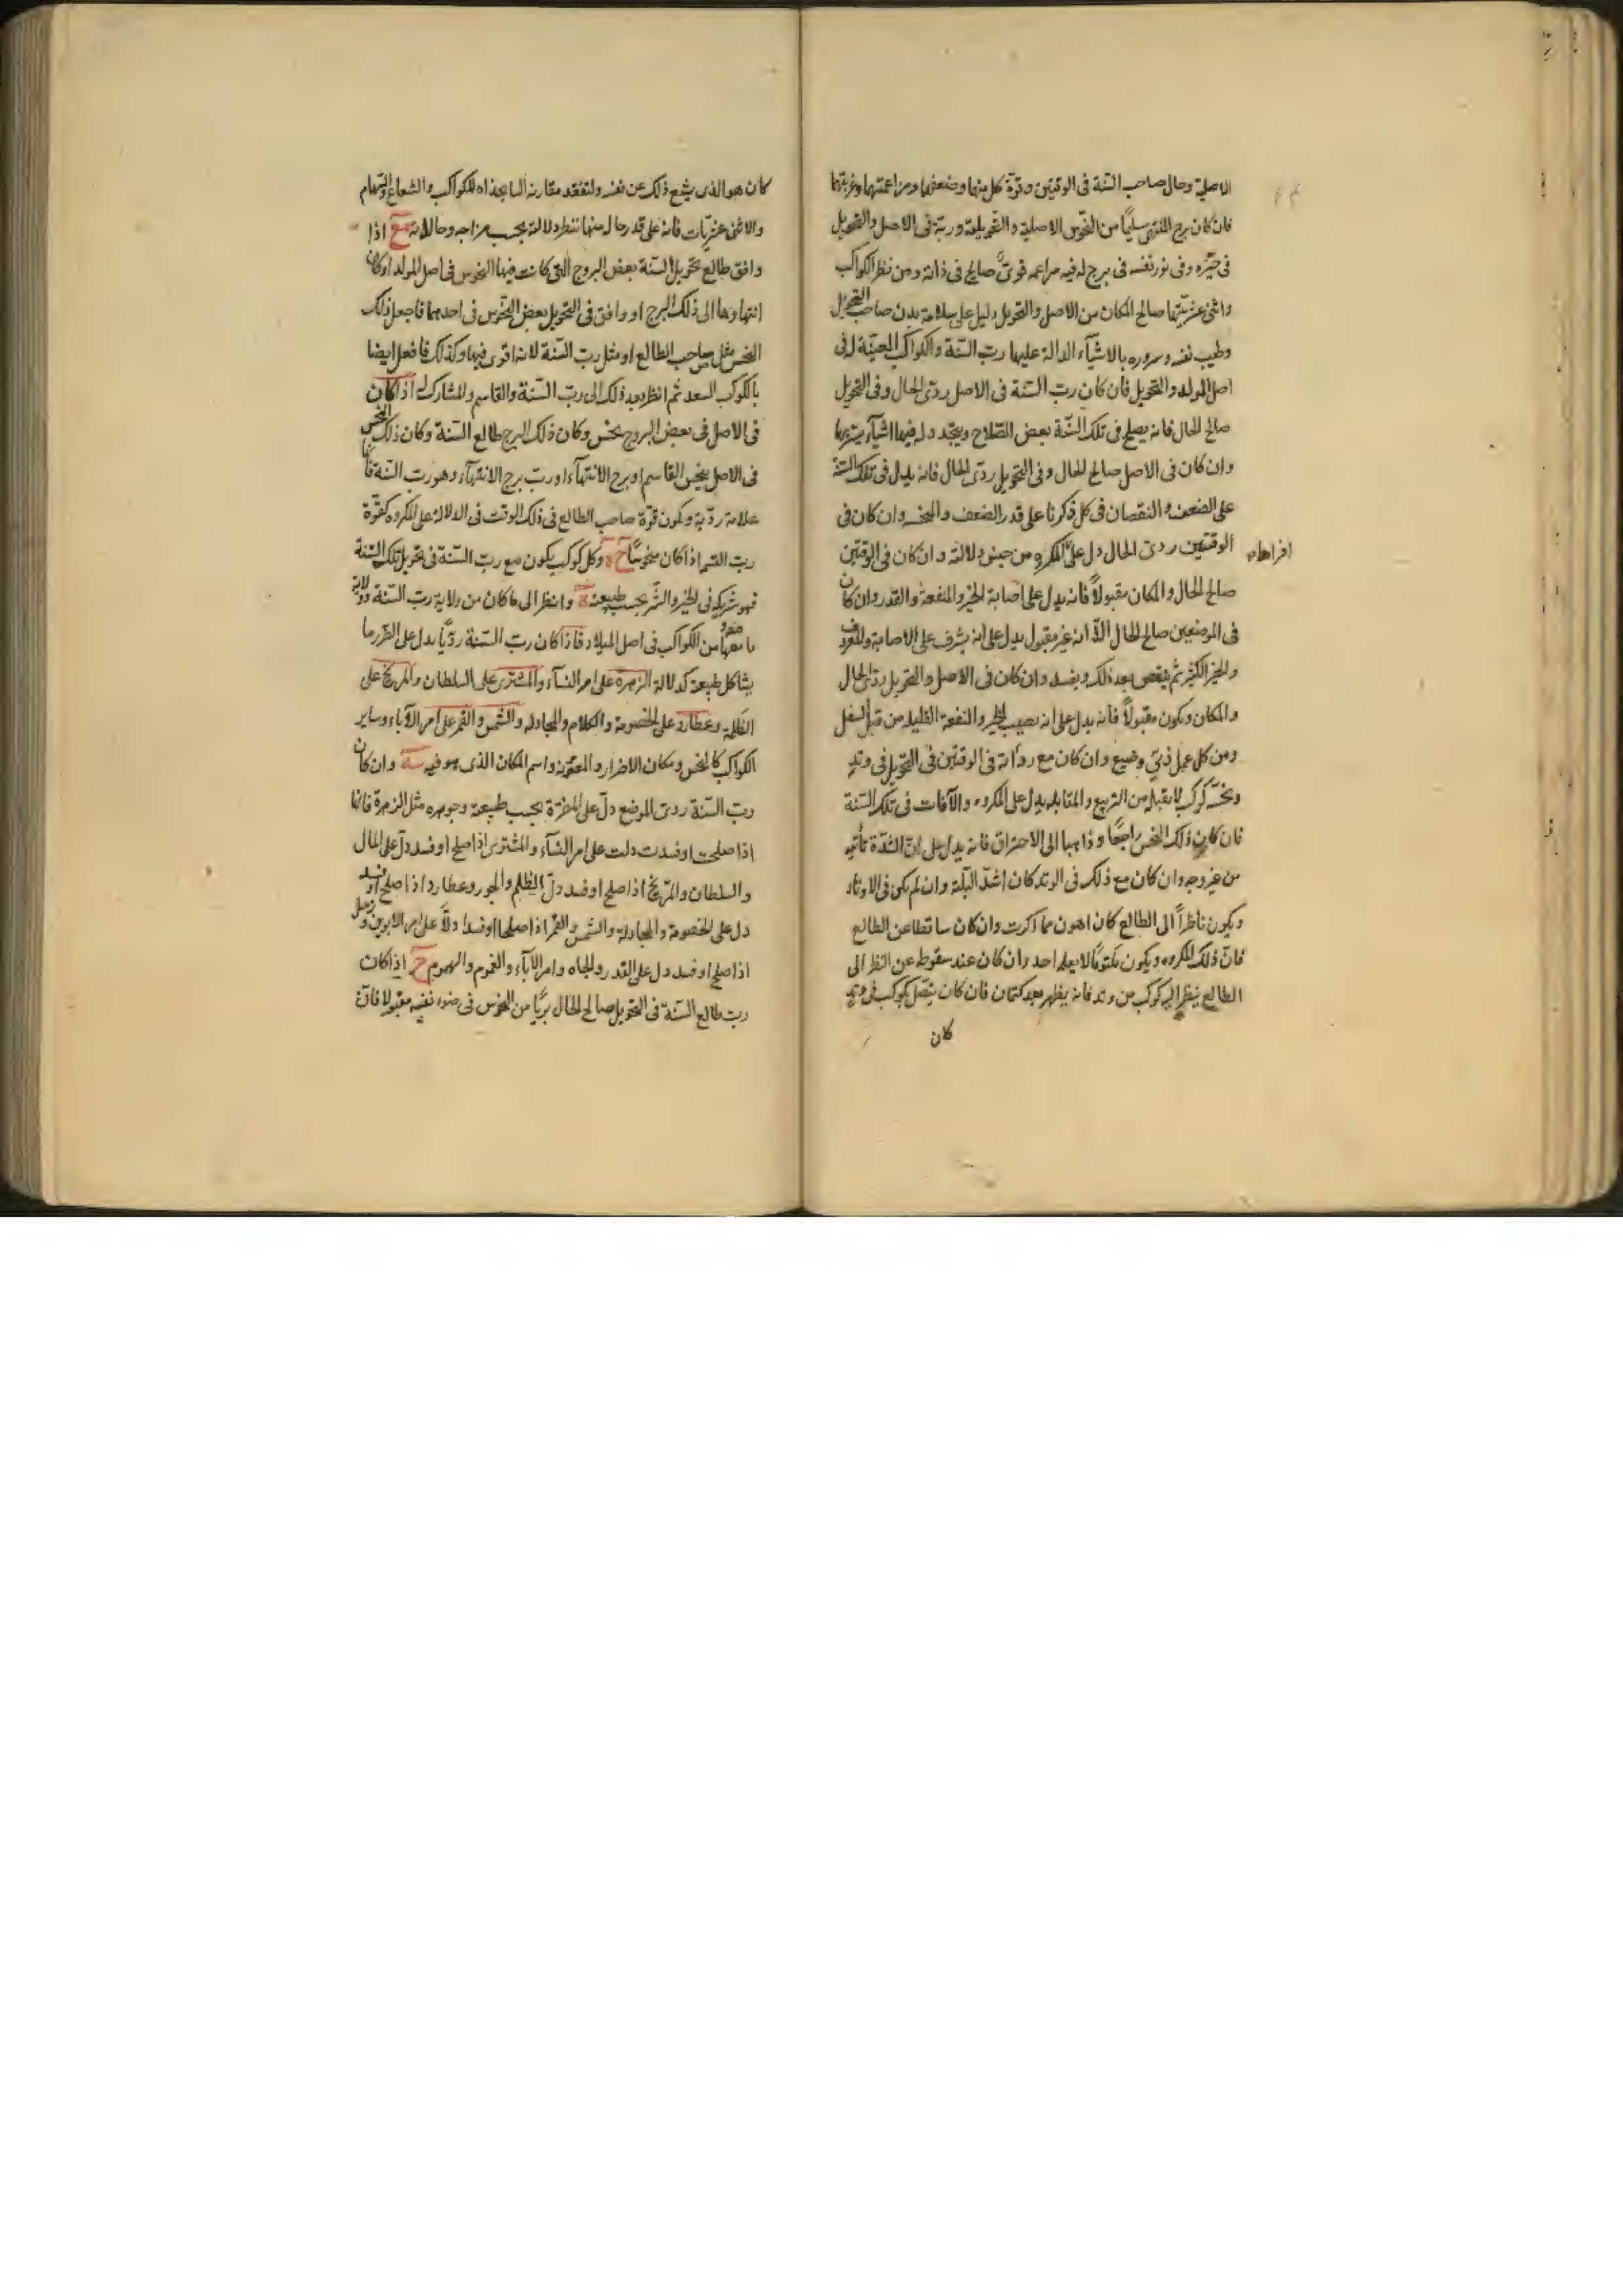 الاصلية وحال صاحب السّنة فى الوقتين وقوّة كل منهما وضعفهما ومزاعمتهما وغربتهما
فان كان برج المنتهى سليمًا من النّحوس الاصلية والتّحويلية وربّه فى الاصل والتحويل
فى حيّزه وفى نور نفسه فى برج له فيه مزاعمه قوىّ صالح فى ذاته ومن نظر الكواكب
واثنى عشريّتهما صالح المكان من الاصل والتحويل دليل على سلامة بدن صاحب التحويل
وطيب نفسه وسروره بالاشيآء الدالة عليها ربّ السّنة والكواكب المعيّنة له فى
اصل المولد والتحويل فان كان ربّ السّنة فى الاصل ردى الحال وفى التحويل
صالح الحال فانه يصلح فى تلك السّنة بعض الصّلاح ويتجدد له فيها اشيآء يسرّ بها
وان كان فى الاصل صالح الحال وفى التحويل ردى الحال فانه يدل فى تلك السنة
على الضعف والنقصان فى كل ذكرنا على قدر الضعف والنحس وان كان فى
الوقتين ردى الحال دل على المكروه من جنس دلالته وان كان فى الوقتين
صالح الحال والمكان مقبولاً فانه يدل على اصابة الخير والمنفعة والقدر وان كان
فى الموضعين صالح الحال الّا انه غير مقبول يدل على انه يشرف على الاصابة والمعروف
والخير الكثير ثم ينقص بعد ذلك ويفسد وان كان فى الاصل والتحويل ردى الحال
والمكان ويكون مقبولاً فانه يدل على انه يصيب الخير والنفعة القليلة من قبل السفل
ومن كل عمل دنىّ وضيع وان كان مع رداته فى الوقتين فى التّحويل فى وتد
ونحسه كوكب لا يقبله من التربيع والمقابلة يدل على المكروه والآفات فى تلك السّنة
فان كان ذلك النحس راجعًا وذاهبا الى الاحتراق فانه يدل على انّ الشّدة تأتيه
من غير وجه وان كان مع ذلك فى الوتد كان اشدّ البلية وان لم يكن فى الاوتاد
ويكون ناظراً الى الطالع كان اهون مما ذكرت وان كان ساقطا عن الطالع
فانّ ذلك المكروه ويكون مكتومًا لا يعلم احد وان كان عند سقوطه عن النظر الى
الطالع ينظر اليه كوكب من وتد فانه يظهر بعد كتمان فان كان يتصل بكوكب فى وتد
كان
كان هو الذى يشيع ذلك عن نفسه ولتفقد مقارنة السابحذاه للكواكب والشعاع والسّهام
والاثنى عشريّات فانه على قدر حال منها تنظر دلالته بحسب مزاجه وحالاته اذا
وافق طالع تحويل السّنة بعض البروج التى كانت فيها النحوس فى اصل المولد او كان
انتهاوها الى ذلك البرج او وافق فى التحويل بعض النّحوس فى احدهما فاجعل ذلك
النحس مثل صاحب الطالع او مثل ربّ السّنة لانه اقوى فيها وكذلك فافعل ايضا
بالكوكب السعد ثم انظر بعد ذلك الى ربّ السّنة والقاسم والمشارك اذا كان
فى الاصل فى بعض البروج نحس وكان ذلك البرج طالع السّنة وكان ذلك النحس
فى الاصل ينحس القاسم او برج الانتهآء او ربّ برج الانتهآء وهو ربّ السّنة فانّها
علامة رديّة ويكون قوّة صاحب الطالع فى ذلك الوقت فى الدلالة على المكروه كقوّة
ربّ القسم اذا كان منحوسًا وكل كوكب يكون مع ربّ السّنة فى تحويل تلك السّنة
فهو شريكه فى الخير والشّر بحسب طبيعته وانظر الى ما كان من ولاية ربّ السّنة وولاية
ما معها من الكواكب فى اصل الميلاد فاذا كان ربّ السّنة رديًّا يدل على الضّرر ما
يشاكل طبيعته كدلالة الزهرة على امر النسآء والمشترى على السلطان والمريخ على
الظلمة وعطارد على الخصومة والكلام والمجادلة والشمس والقمر على امر الآباء وساير
الكواكب كالنحس ومكان الاضرار والعقوبة واسم المكان الذى هو فيه وان كان
ربّ السّنة ردى الموضع دلّ على المضرّة بحسب طبيعته وجوهره مثل الزهرة فانها
اذا صلحت او فسدت دلت على امر النسآء والمشترى اذا صلح او فسد دلّ على المال
والسلطان والمرّيخ اذا صلح او فسد دلّ الظلم والجور وعطارد اذا صلح او فسد
دل على الخصومة والمجادلة والشمس والقمر اذا صلحا او فسدا دلّا على امر الابوين وزحل
اذا صلح او فسد دل على القدر والجاه وامر الآبآء والغموم والهموم اذا كان
ربّ طالع السّنة فى التحويل صالح الحال بريًّا من النحوس فى ضوء نفسه مقبولا فانّ